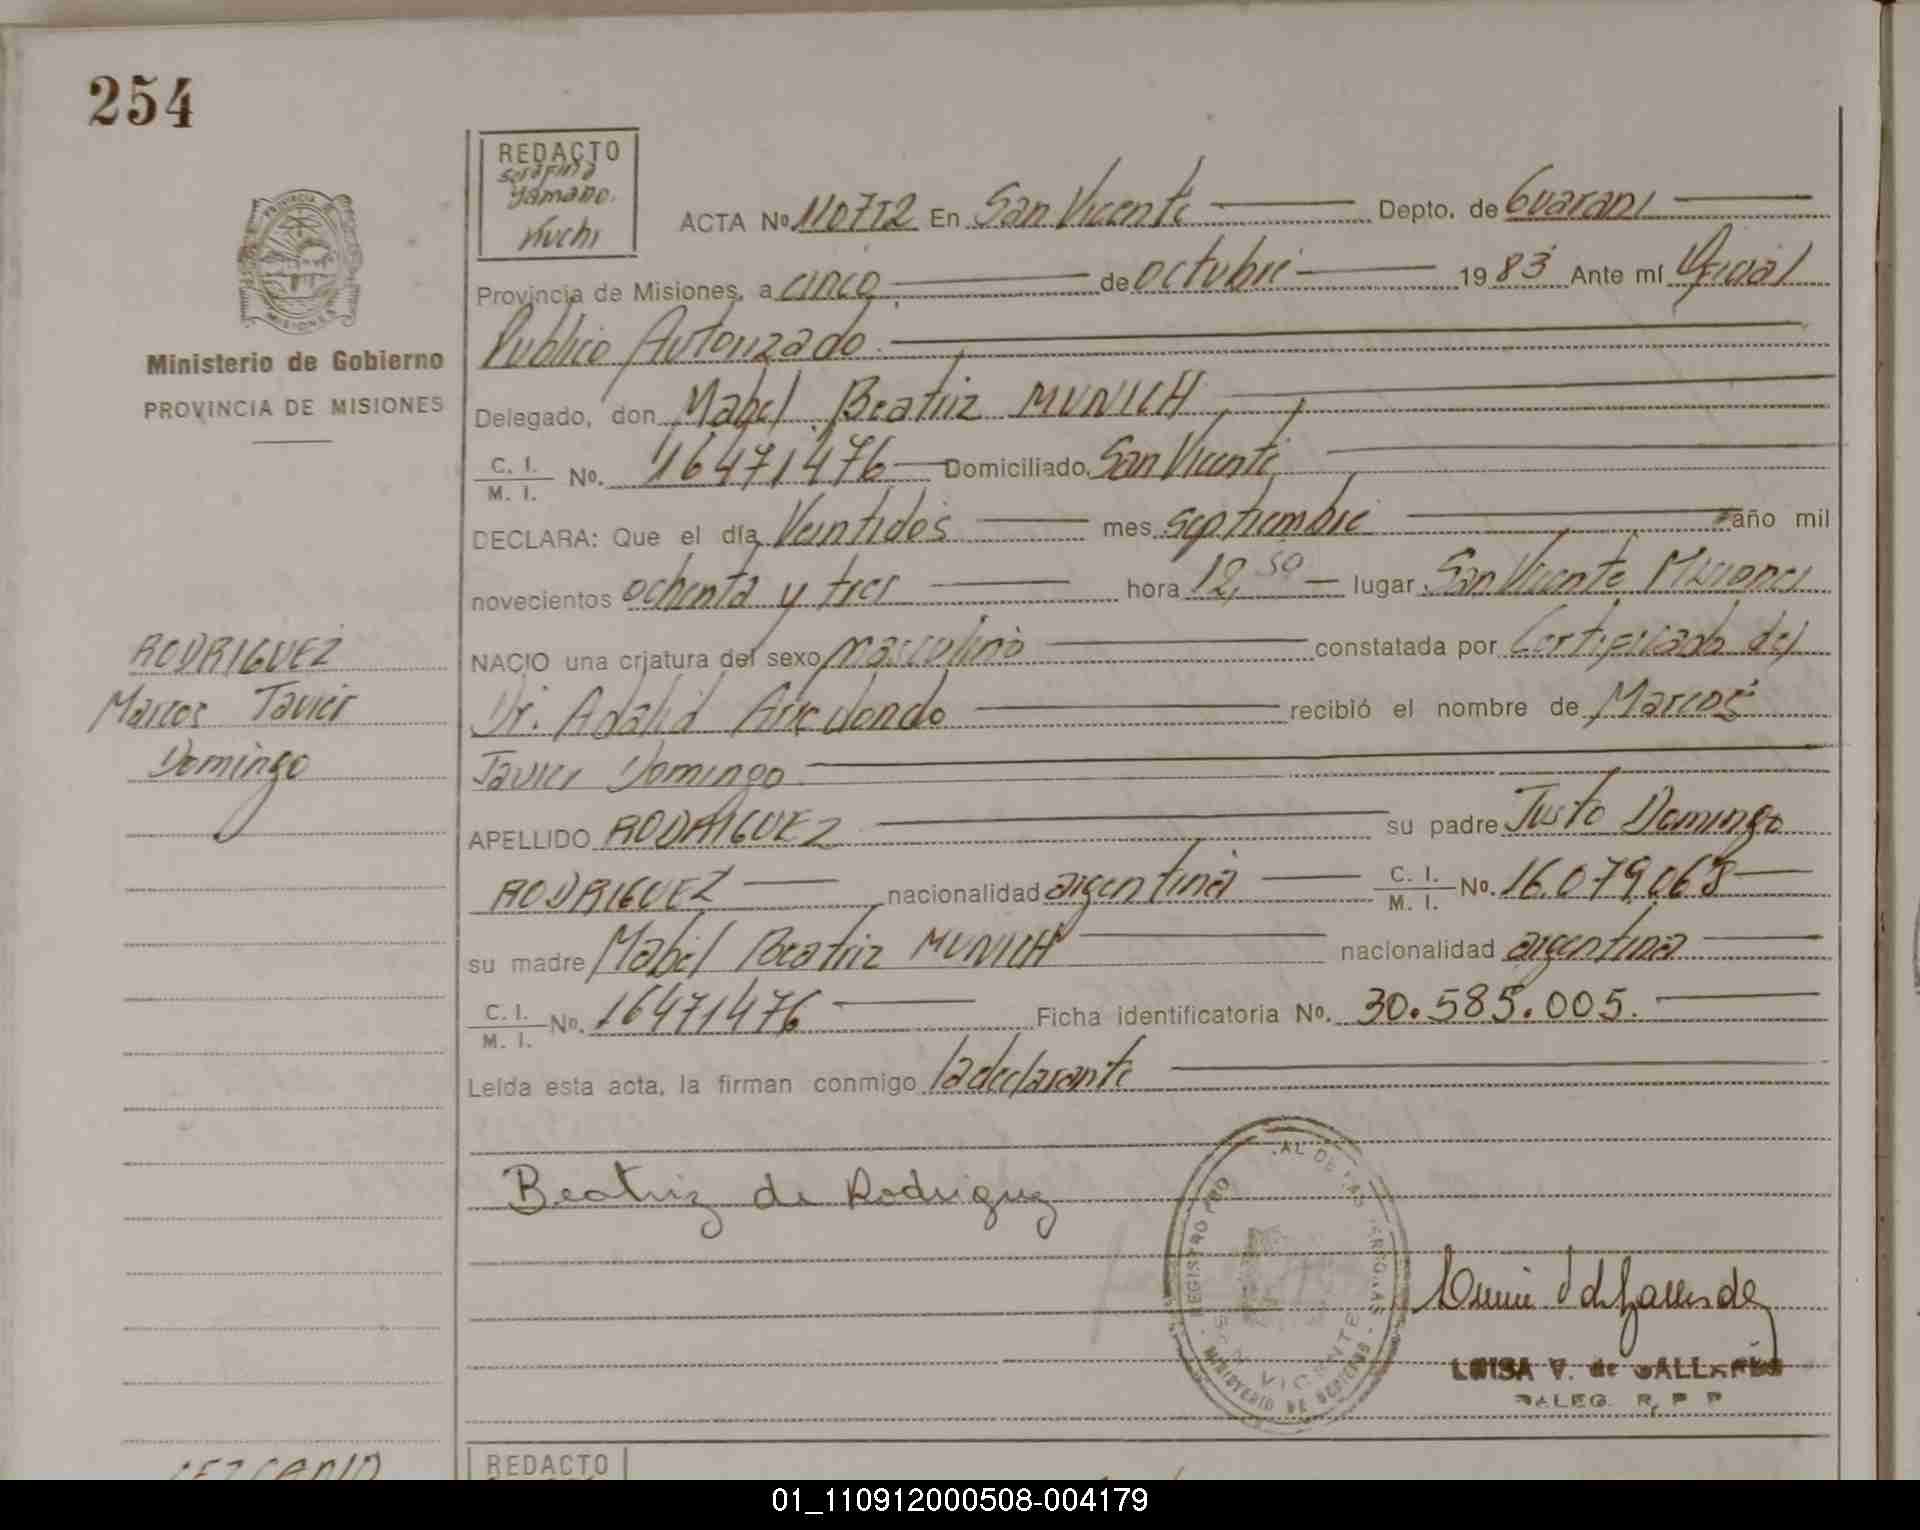 254
REDACTO
Serafina
Yamano.
Kuchi
ACTA Nº 110712 En San Vicente Depto. de Guarani
Provincia de Misiones, a cinco de octubre 1983 Ante mí Oficial
Publico Autorizado
Ministerio de Gobierno
PROVINCIA DE MISIONES
Delegado, don Mabel Beatriz MUNICH
C. I.
M. I. Nº. 16471476 Domiciliado San Vicente
DECLARA: Que el día Veintidos mes septiembre año mil
novecientos ochenta y tres hora 12,50 lugar San Vicente Misiones
RODRIGUEZ
Marcos Javier
Domingo
NACIO una criatura del sexo masculino constatada por Certificado del
Dr. Adalid Arredondo recibió el nombre de Marcos
Javier Domingo
APELLIDO RODRIGUEZ su padre Justo Domingo
RODRIGUEZ nacionalidad argentina C. I. M. I. Nº. 16.079.068
su madre Mabel Beatriz MUNICH nacionalidad argentina
C. I.
M. I. Nº. 16471476 Ficha identificatoria Nº. 30.585.005.
Leída esta acta, la firman conmigo la declarante
Beatriz de Rodriguez
REGISTRO PRO AL DE LAS PERSONAS
SAN VICENTE
MINISTERIO DE GOBIERNO
LUISA V. de
DALEG. R. P P
REDACTO
01_110912000508-004179